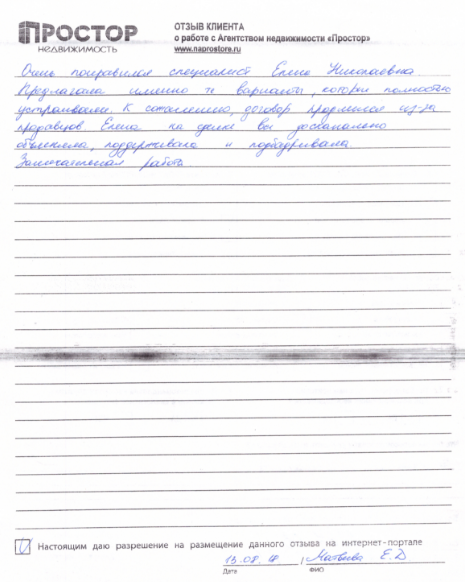 ПРОСТОР
НЕДВИЖИМОСТЬ
ОТЗЫВ КЛИЕНТА
о работе с Агентством недвижимости «Простор»
www.naprostore.ru
Очень понравился специалист Елена Николаевна.
Предлагала именно те варианты, которые полностью
устраивали. К сожалению, договор продлился из-за
продавцов. Елена на деле все досконально
объясняла, поддерживала и подбадривала.
Замечательная работа
Настоящим даю разрешение на размещение данного отзыва на интернет-портале
13.08.18 Матвеева Е.Д
Дата ФИО